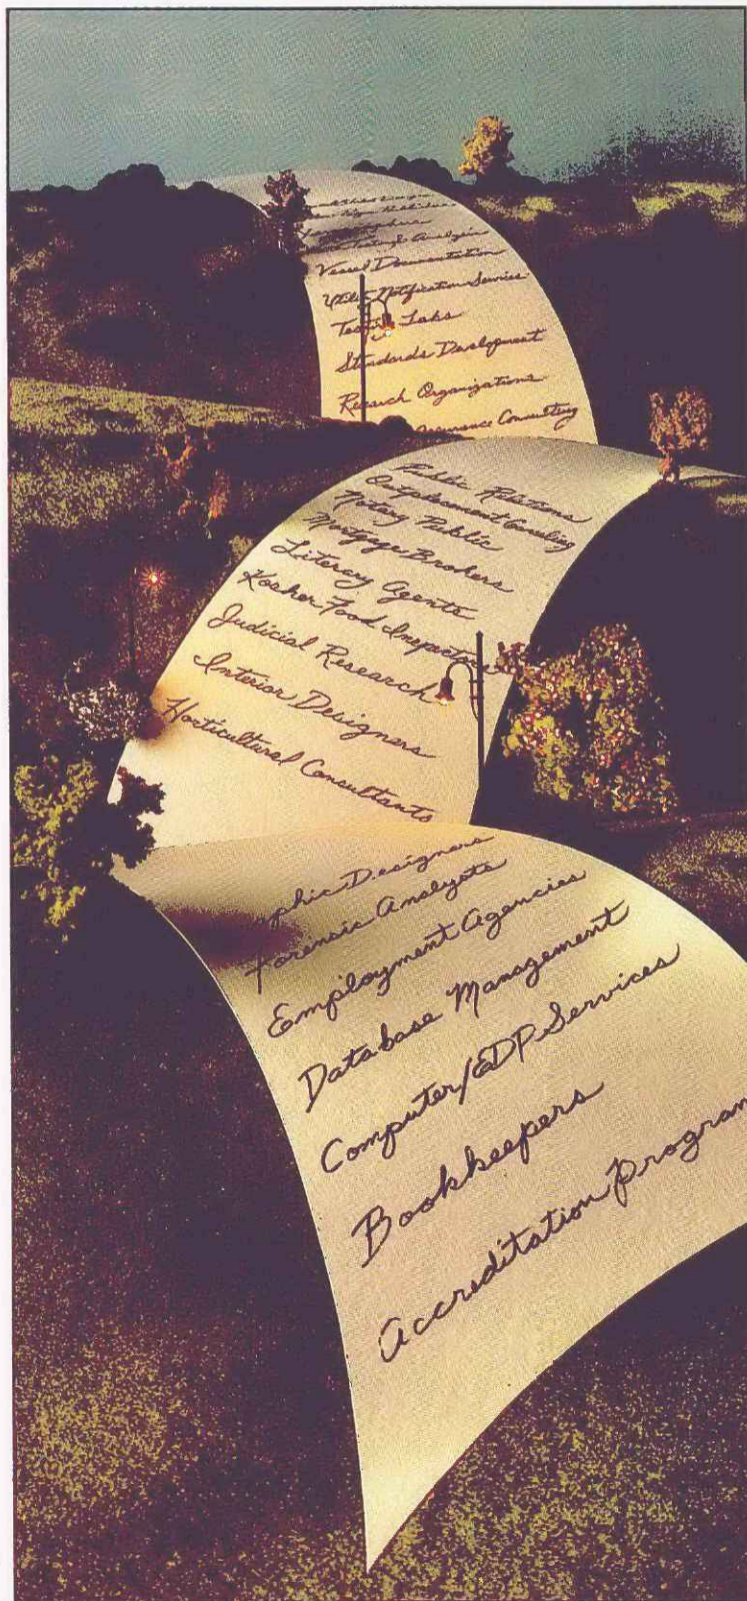 Testing & Analysis
Vessel Documentation
Utility Notification Service
Testing Labs
Standards Development
Research Organizations
Insurance Consulting
Public Relations
Outplacement Counseling
Notary Public
Mortgage Brokers
Literary Agents
Kosher Food Inspection
Judicial Research
Interior Designers
Horticultural Consultants
aphic Designers
Forensic Analysts
Employment Agencies
Database Management
Computer/EDP Services
Bookkeepers
Accreditation Program